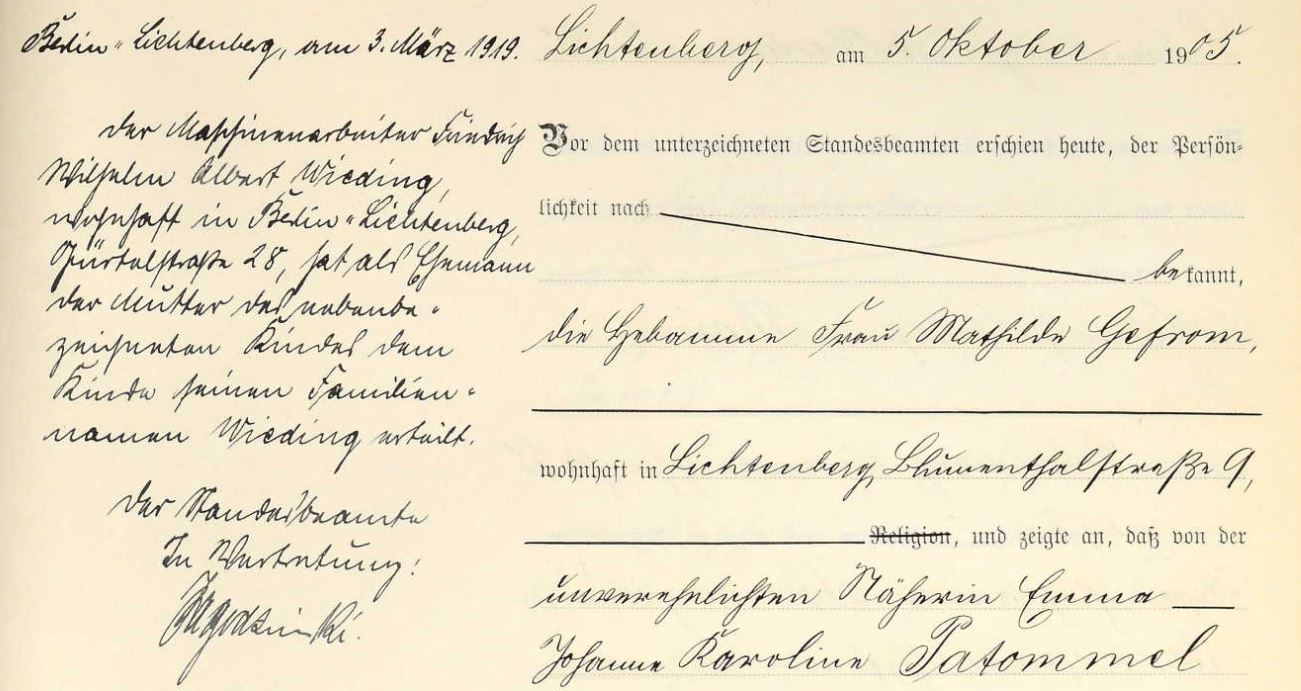 Berlin-Lichtenberg, am 3. März 1919.
Der Maschinenarbeiter Friedrich
Wilhelm Albert Wieding,
wohnhaft in Berlin-Lichtenberg,
28, hat als Ehemann
der Mutter des nebenbe-
zeichneten Kindes dem
Kinde seinen Familien-
namen Wieding erteilt.
Der Standesbeamte
In Vertretung:
Lichtenberg, am 5. Oktober 1905.
Vor dem unterzeichneten Standesbeamten erschien heute, der Persön-
lichkeit nach
bekannt,
die Hebamme Frau Mathilde Gefrom,
wohnhaft in Lichtenberg, Blumenthalstraße 9,
Religion, und zeigte an, daß von der
unverehelichten Näherin Emma
Johanne Karoline Patommel